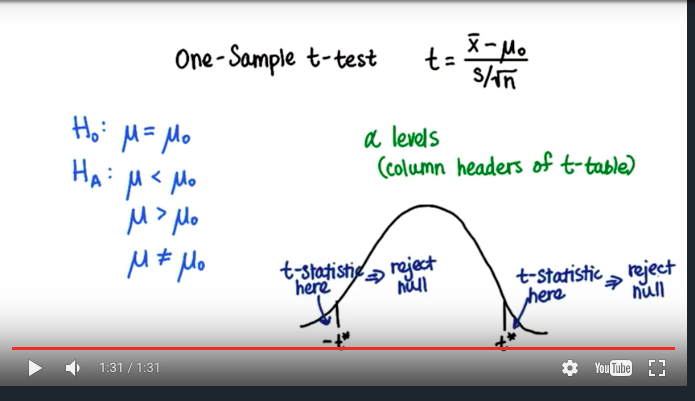 One-Sample t-test t = x̄ - μ₀ / s/√n
H₀: μ = μ₀
H_A: μ < μ₀
μ > μ₀
μ ≠ μ₀
α levels
(column headers of t-table)
t-statistic here ⇒ reject null
t-statistic here ⇒ reject null
-t*
t*
1:31 / 1:31
YouTube